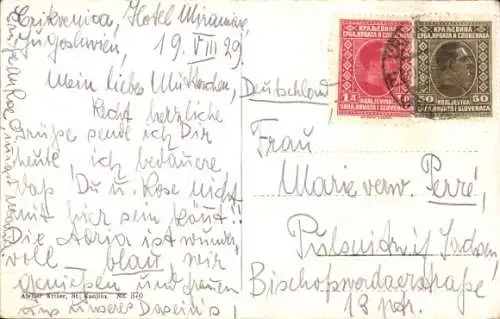 Crikvenica, Hotel Miramare,
Jugoslavien, 19. VIII 29.
Mein liebes Mütterchen,
Recht herzliche
Grüße sende ich Dir
heute, ich bedauere
daß Du u. Rose nicht
mit hier sein könnt!!
Die Adria ist wunder-
voll blau, wir
genießen und freuen
uns unseres Daseins!
Atelier Eriber, St. Kanjiža. No. 370
КРАЉЕВИНА
СРБА, ХРВАТА И СЛОВЕНАЦА
1 Д
KRALJEVINA
SRBA, HRVATA I SLOVENACA
КРАЉЕВИНА
СРБА, ХРВАТА И СЛОВЕНАЦА
50
50
KRALJEVINA
SRBA, HRVATA I SLOVENACA
Deutschland
Frau
Marie verw. Perré,
Pulsnitz i/ Sachsen
Bischofswerdaerstraße
13 ptr.